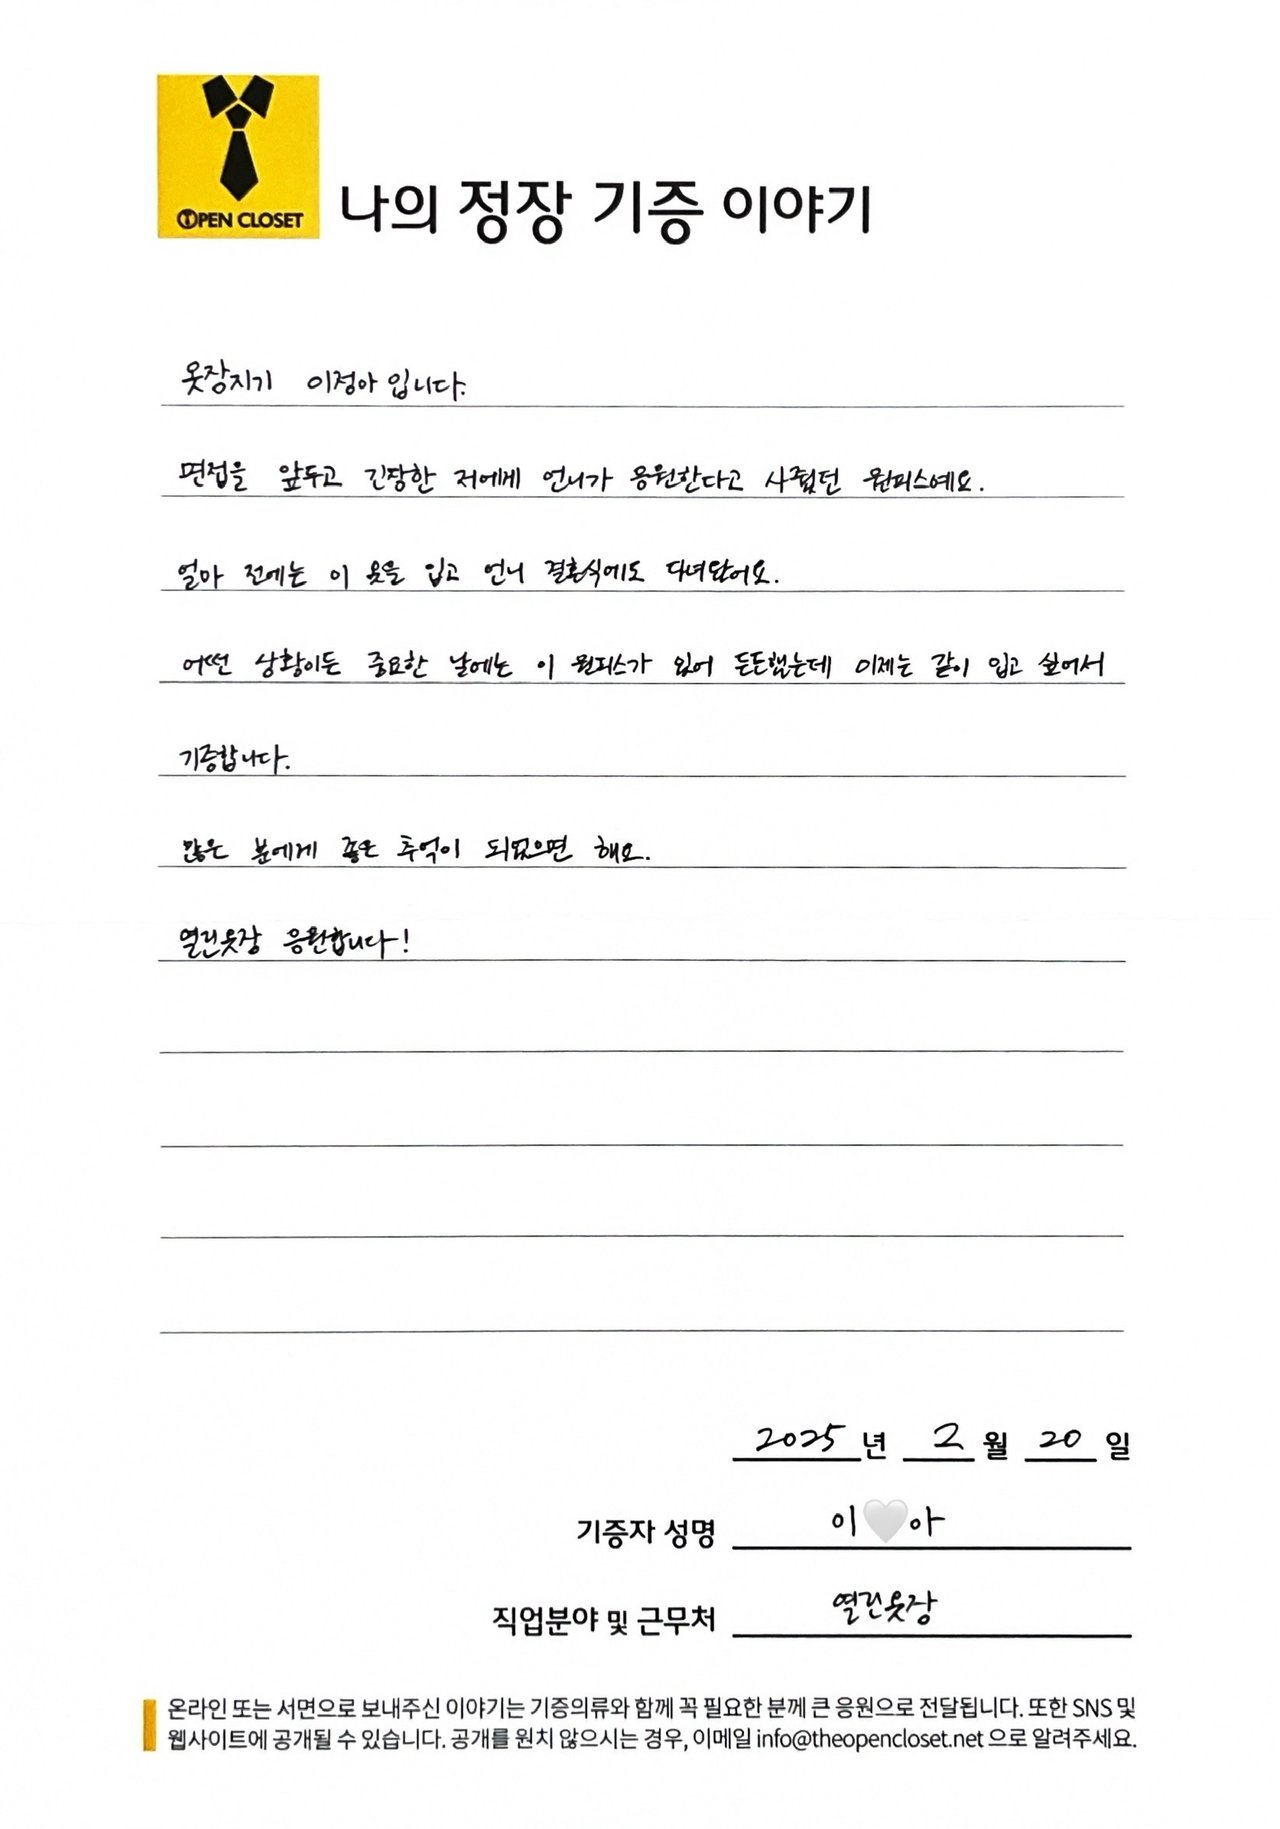 OPEN CLOSET
나의 정장 기증 이야기
옷장지기 이정아 입니다.
면접을 앞두고 긴장한 저에게 언니가 응원한다고 사줬던 원피스예요.
얼마 전에는 이 옷을 입고 언니 결혼식에도 다녀왔어요.
어떤 상황이든 중요한 날에는 이 원피스가 있어 든든했는데 이제는 같이 입고 싶어서
기증합니다.
많은 분에게 좋은 추억이 되었으면 해요.
열린옷장 응원합니다!
2025 년 2 월 20 일
기증자 성명 이🤍아
직업분야 및 근무처 열린옷장
온라인 또는 서면으로 보내주신 이야기는 기증의류와 함께 꼭 필요한 분께 큰 응원으로 전달됩니다. 또한 SNS 및
웹사이트에 공개될 수 있습니다. 공개를 원치 않으시는 경우, 이메일 info@theopencloset.net 으로 알려주세요.